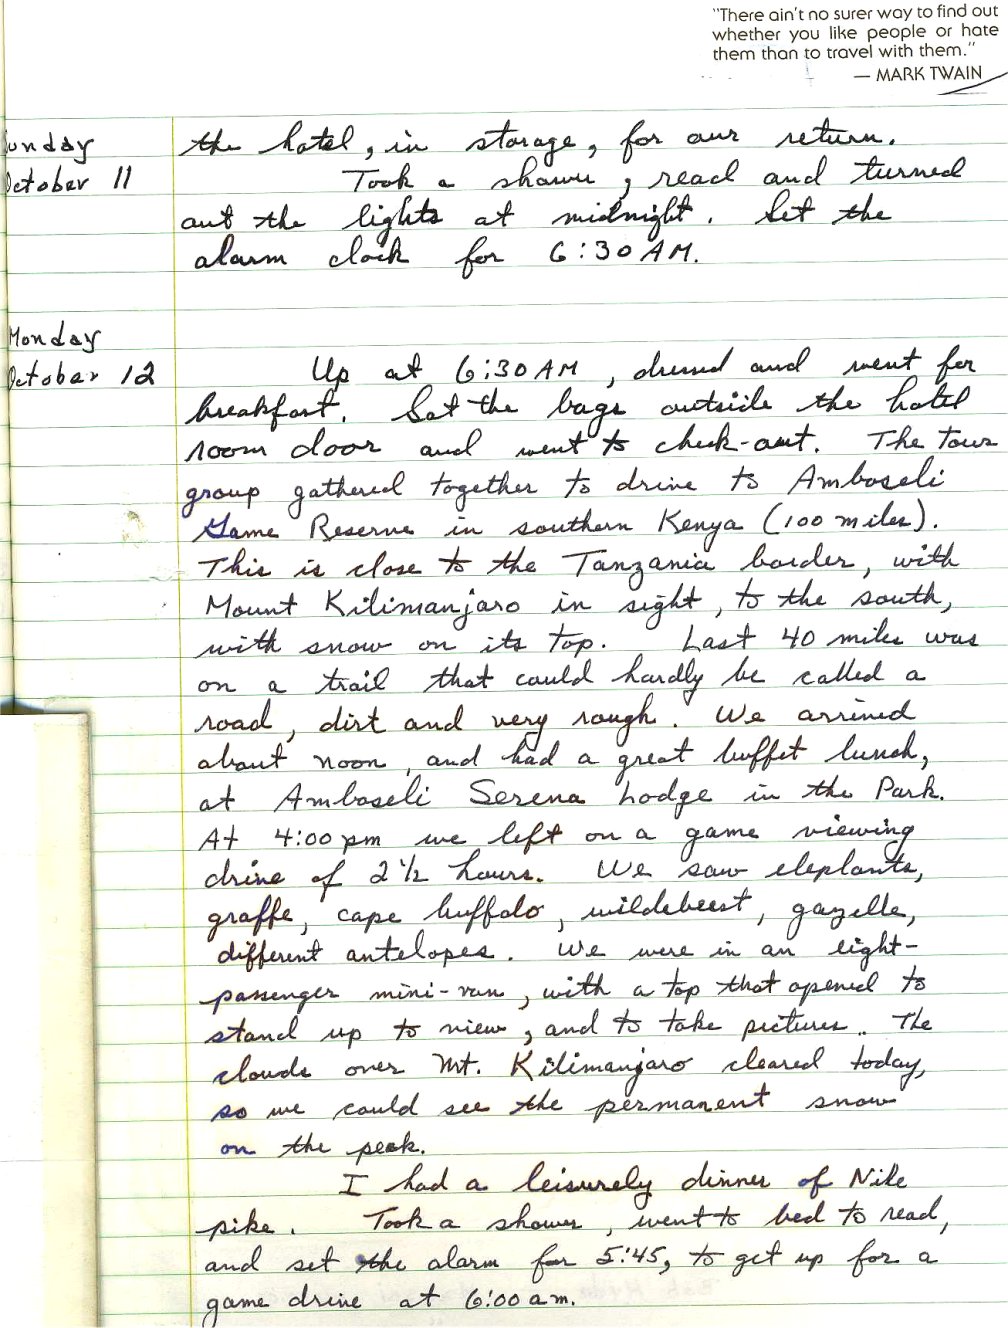 "There ain't no surer way to find out
whether you like people or hate
them than to travel with them."
— MARK TWAIN
unday
October 11
the hotel, in storage, for our return.
Took a shower, read and turned
out the lights at midnight. Set the
alarm clock for 6:30 AM.
Monday
October 12
Up at 6:30 AM, dressed and went for
breakfast. Set the bags outside the hotel
room door and went to check-out. The tour
group gathered together to drive to Amboseli
Game Reserve in southern Kenya (100 miles).
This is close to the Tanzania border, with
Mount Kilimanjaro in sight, to the south,
with snow on its top. Last 40 miles was
on a trail that could hardly be called a
road, dirt and very rough. We arrived
about noon, and had a great buffet lunch,
at Amboseli Serena Lodge in the Park.
At 4:00 pm we left on a game viewing
drive of 2 1/2 hours. We saw eleplants,
graffe, cape buffalo, wildebeest, gazelle,
different antelopes. We were in an eight-
passenger mini-van, with a top that opened to
stand up to view, and to take pictures. The
clouds over Mt. Kilimanjaro cleared today,
so we could see the permanent snow
on the peak.
I had a leisurely dinner of Nile
pike. Took a shower, went to bed to read,
and set the alarm for 5:45, to get up for a
game drive at 6:00 am.